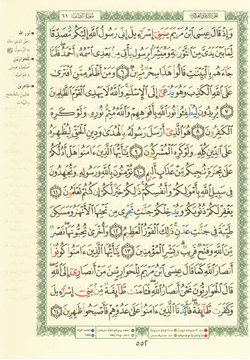 سورة الصف ٦١
وَإِذْ قَالَ عِيسَى ابْنُ مَرْيَمَ يَٰبَنِيٓ إِسْرَٰٓءِيلَ إِنِّي رَسُولُ ٱللَّهِ إِلَيْكُم مُّصَدِّقًا
لِّمَا بَيْنَ يَدَيَّ مِنَ ٱلتَّوْرَىٰةِ وَمُبَشِّرًۢا بِرَسُولٍ يَأْتِي مِنۢ بَعْدِي ٱسْمُهُۥٓ أَحْمَدُ فَلَمَّا
جَآءَهُم بِٱلْبَيِّنَٰتِ قَالُوا۟ هَٰذَا سِحْرٌ مُّبِينٌ ٦ وَمَنْ أَظْلَمُ مِمَّنِ ٱفْتَرَىٰ
عَلَى ٱللَّهِ ٱلْكَذِبَ وَهُوَ يُدْعَىٰٓ إِلَى ٱلْإِسْلَٰمِ وَٱللَّهُ لَا يَهْدِي ٱلْقَوْمَ ٱلظَّٰلِمِينَ
٧ يُرِيدُونَ لِيُطْفِـُٔوا۟ نُورَ ٱللَّهِ بِأَفْوَٰهِهِمْ وَٱللَّهُ مُتِمُّ نُورِهِۦ وَلَوْ كَرِهَ
ٱلْكَٰفِرُونَ ٨ هُوَ ٱلَّذِيٓ أَرْسَلَ رَسُولَهُۥ بِٱلْهُدَىٰ وَدِينِ ٱلْحَقِّ لِيُظْهِرَهُۥ
عَلَى ٱلدِّينِ كُلِّهِۦ وَلَوْ كَرِهَ ٱلْمُشْرِكُونَ ٩ يَٰٓأَيُّهَا ٱلَّذِينَ ءَامَنُوا۟ هَلْ أَدُلُّكُمْ
عَلَىٰ تِجَٰرَةٍ تُنجِيكُم مِّنْ عَذَابٍ أَلِيمٍ ١٠ تُؤْمِنُونَ بِٱللَّهِ وَرَسُولِهِۦ وَتُجَٰهِدُونَ
فِي سَبِيلِ ٱللَّهِ بِأَمْوَٰلِكُمْ وَأَنفُسِكُمْ ذَٰلِكُمْ خَيْرٌ لَّكُمْ إِن كُنتُمْ تَعْلَمُونَ ١١
يَغْفِرْ لَكُمْ ذُنُوبَكُمْ وَيُدْخِلْكُمْ جَنَّٰتٍ تَجْرِي مِن تَحْتِهَا ٱلْأَنْهَٰرُ وَمَسَٰكِنَ
طَيِّبَةً فِي جَنَّٰتِ عَدْنٍ ذَٰلِكَ ٱلْفَوْزُ ٱلْعَظِيمُ ١٢ وَأُخْرَىٰ تُحِبُّونَهَا نَصْرٌ
مِّنَ ٱللَّهِ وَفَتْحٌ قَرِيبٌ وَبَشِّرِ ٱلْمُؤْمِنِينَ ١٣ يَٰٓأَيُّهَا ٱلَّذِينَ ءَامَنُوا۟ كُونُوٓا۟
أَنصَارَ ٱللَّهِ كَمَا قَالَ عِيسَى ٱبْنُ مَرْيَمَ لِلْحَوَارِيِّـۧنَ مَنْ أَنصَارِيٓ إِلَى ٱللَّهِ
قَالَ ٱلْحَوَارِيُّونَ نَحْنُ أَنصَارُ ٱللَّهِ فَـَٔامَنَت طَّآئِفَةٌ مِّنۢ بَنِيٓ إِسْرَٰٓءِيلَ
وَكَفَرَت طَّآئِفَةٌ فَأَيَّدْنَا ٱلَّذِينَ ءَامَنُوا۟ عَلَىٰ عَدُوِّهِمْ فَأَصْبَحُوا۟ ظَٰهِرِينَ ١٤
٥٥٢